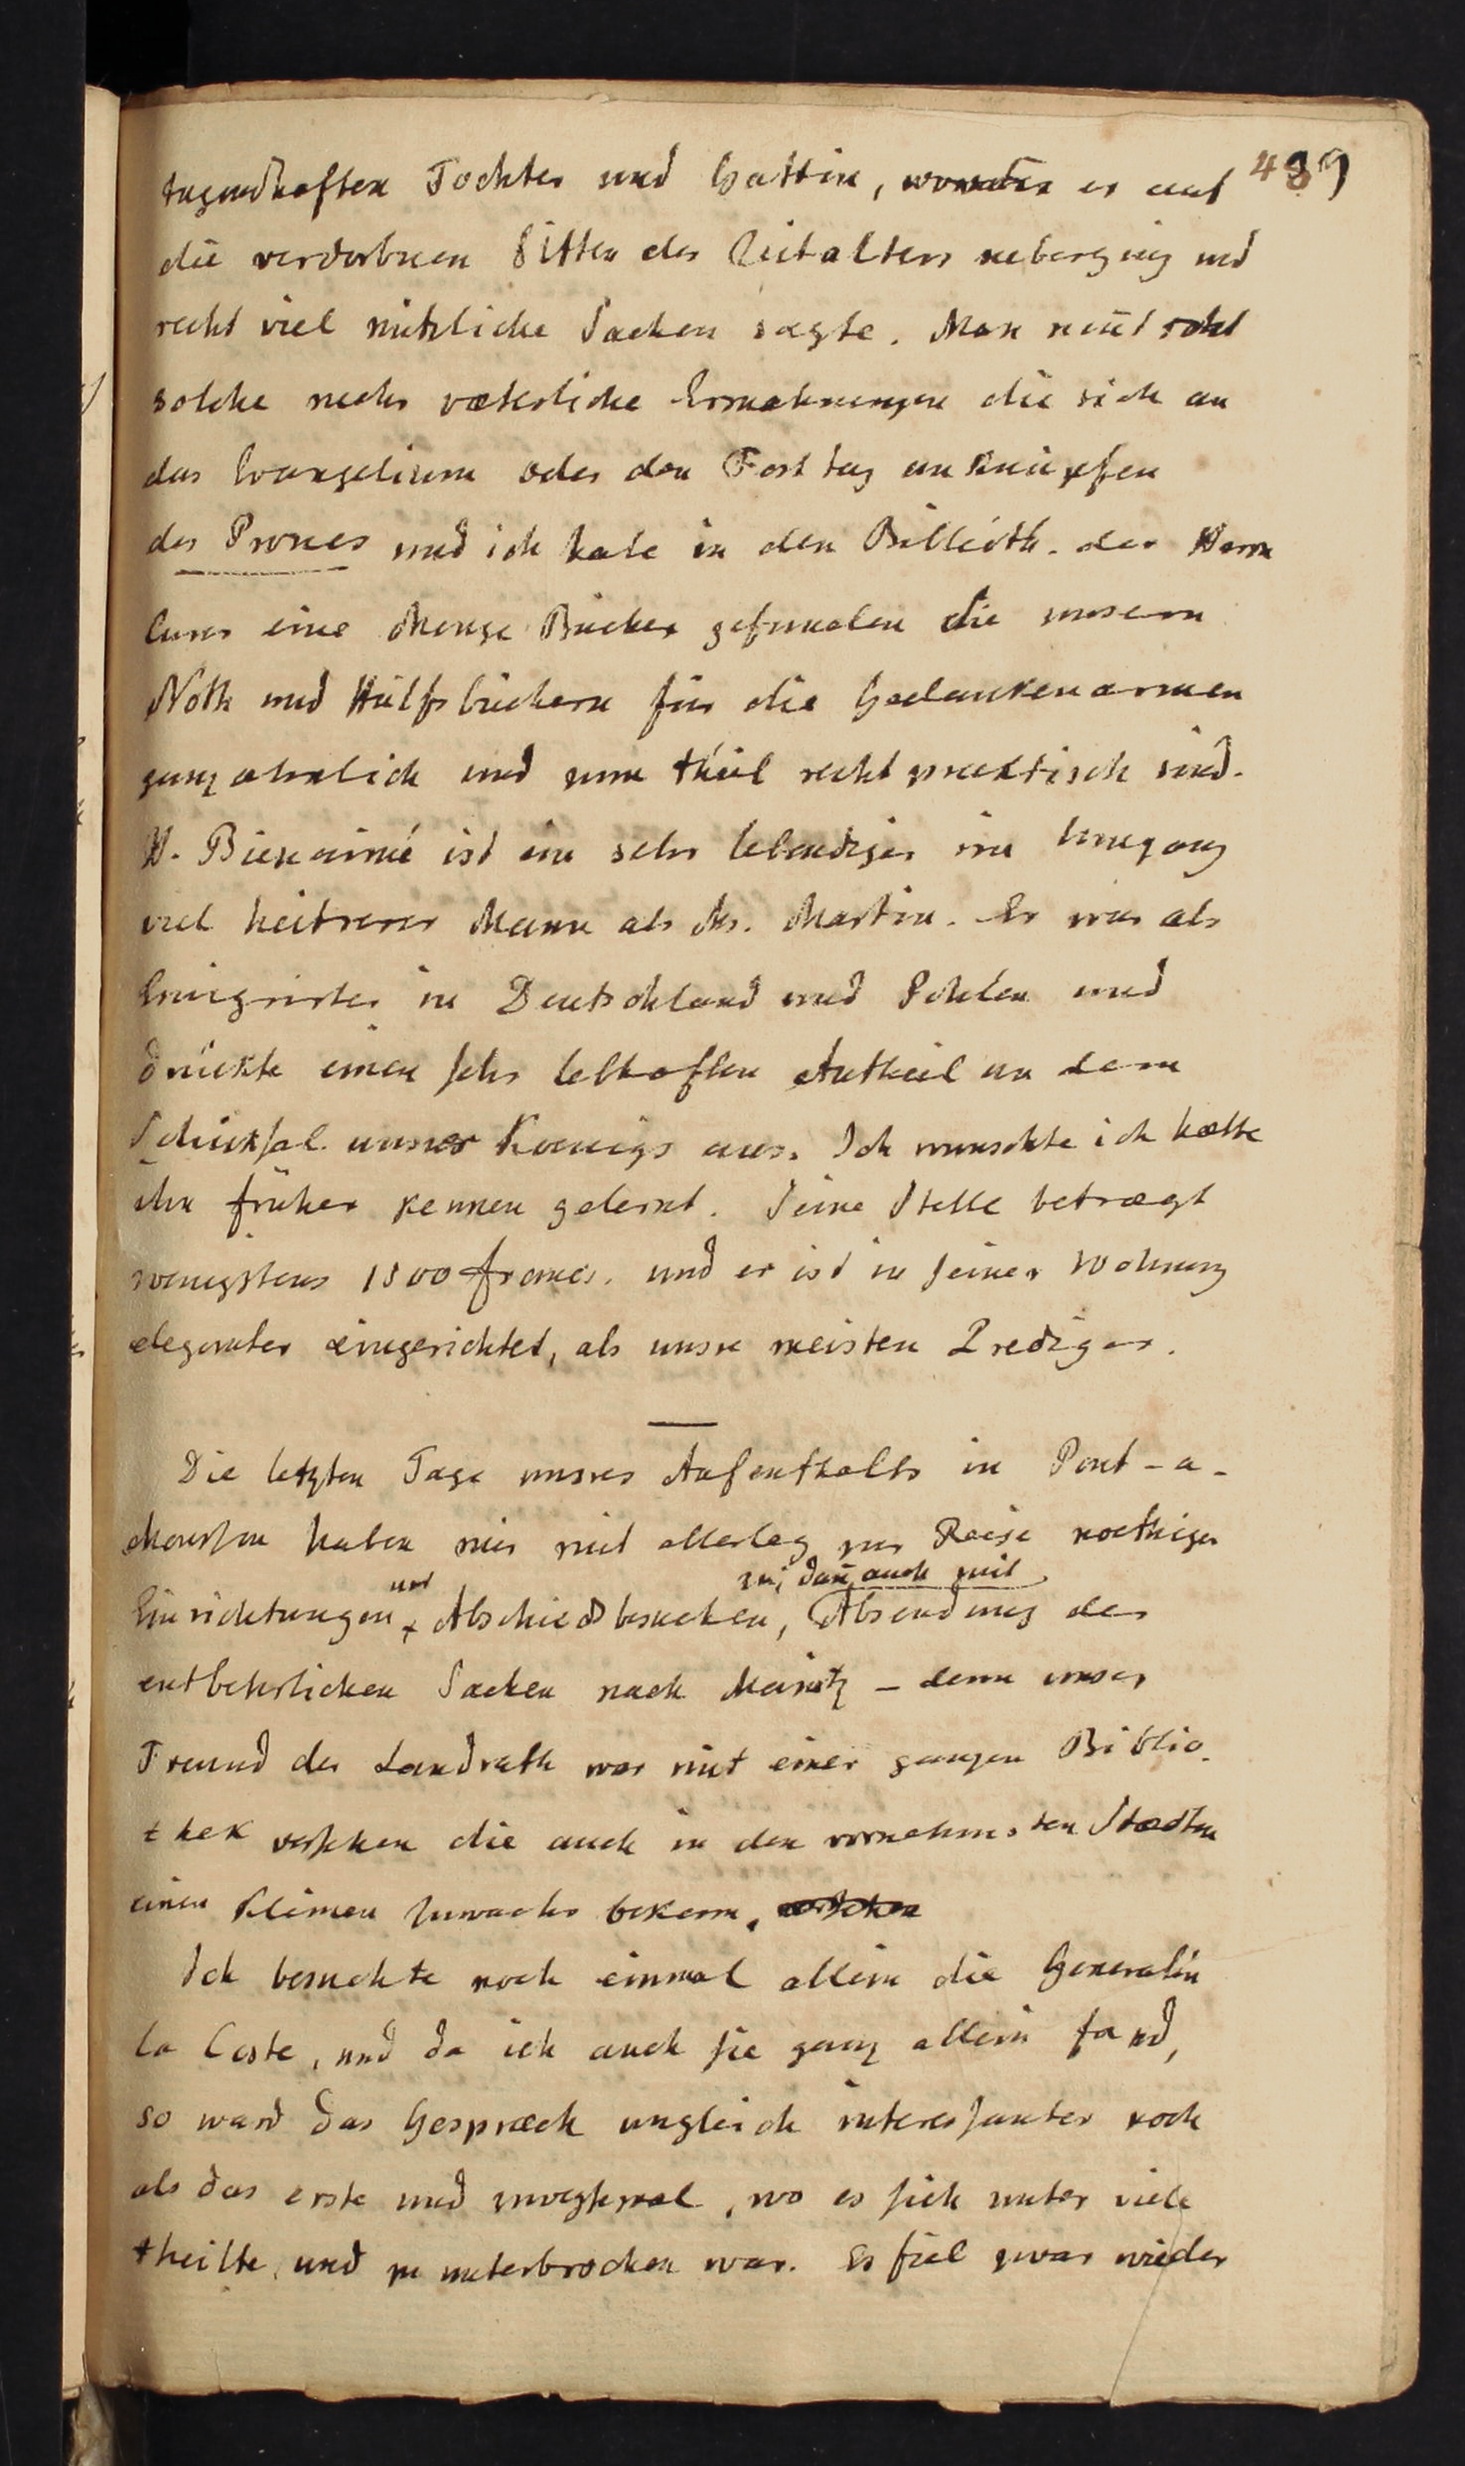 489
tugendhaften Tochter und Gattin, er auf
die verdorbnen Sitten des Zeitalters ueberging und
recht viel nützliche Sachen sagte. Man neñt
solche mehr væterliche Ermahnungen die sich an
das Evangelium oder den Festtag anknüpfen
des Prones und ich habe in den Biblioth. der Herrn
Cures eine Menge Bücher gefunden die unsern
Noth und Hülfsbüchern für die Gedankenarmen
ganz ahnlich und zum theil recht practisch sind.
H. Bienaimé ist ein sehr lebendiger im Umgang
viel heitrerer Mann als Mr. Martin. Er war als
Emigrirter in Deutschland und Pohlen und
drückte einen sehr lebhaften Antheil an dem
Schicksal unsres Koenigs aus. Ich wunschte ich hætte
ihn früher kennen gelernt. Seine Stelle betrægt
wenigstens 1500 francs. und er ist in seiner Wohnung
eleganter eingerichtet, als unsre meisten Prediger.
Die letzten Tage unsres Aufenthalts in Pont-a-
Mousson haben wir mit allerley zur Reise noethigen
Einrichtungen und Abschiedsbesuchen, zu, dañ auch mit Absendung der
entbehrlichen Sachen nach Maintz – denn unser
Freund der Landrath war mit einer ganzen Biblio-
thek versehen die auch in den vornehmsten Stædten
einen kleinen Zuwachs bekam.
Ich besuchte noch einmal allein die Generalin
la Coste, und da ich auch sie ganz allein fand,
so ward das Gespræch ungleich interessanter noch
als das erste und zweytemal, wo es sich unter viele
theilte, und zu unterbrochen war. Es fiel zwar wieder